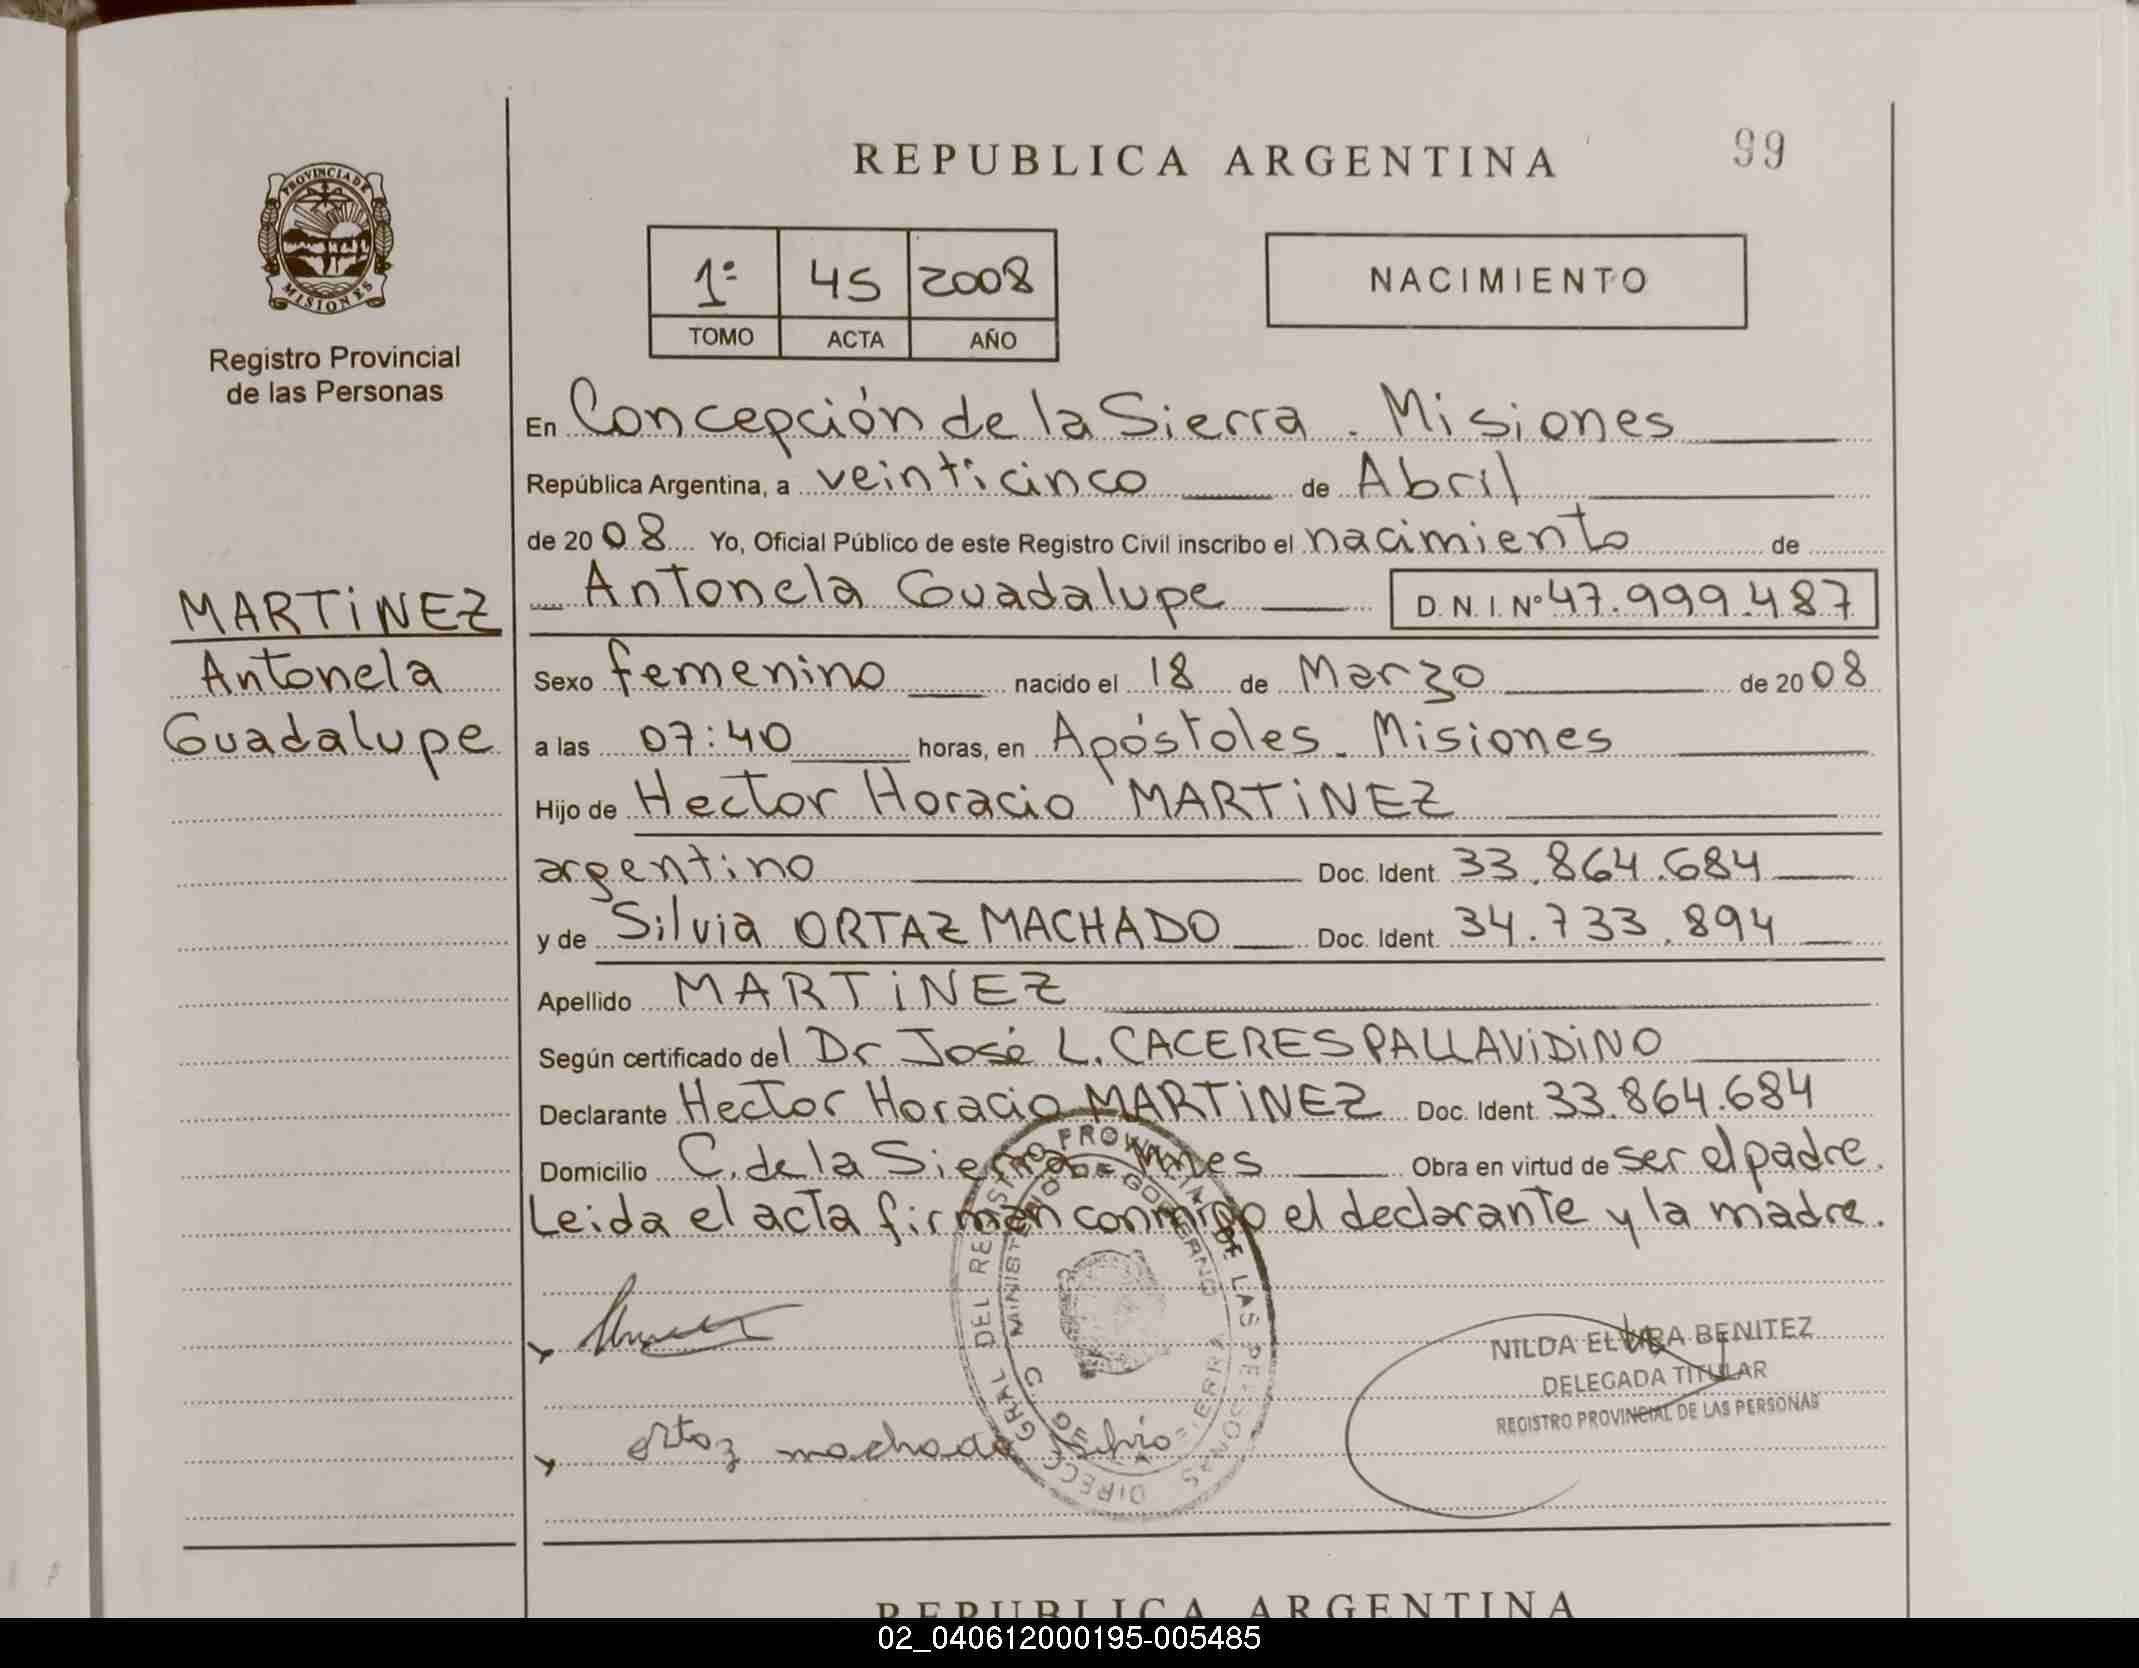 REPUBLICA ARGENTINA
99
PROVINCIA DE
MISIONES
Registro Provincial
de las Personas
1º 45 2008
TOMO ACTA AÑO
NACIMIENTO
En Concepción de la Sierra. Misiones
República Argentina, a veinticinco de Abril
de 2008 Yo, Oficial Público de este Registro Civil inscribo el nacimiento de
Antonela Guadalupe D.N.I. Nº 47.999.487
MARTiNEZ
Antonela
Guadalupe
Sexo femenino nacido el 18 de Marzo de 2008
a las 07:40 horas, en Apóstoles. Misiones
Hijo de Hector Horacio MARTiNEZ
argentino Doc. Ident. 33.864.684
y de Silvia ORTAZ MACHADO Doc. Ident. 34.733.894
Apellido MARTiNEZ
Según certificado del Dr José L. CACERES PALLAViDiNO
Declarante Hector Horacio MARTiNEZ Doc. Ident. 33.864.684
Domicilio C. de la Sierra Mnes Obra en virtud de ser el padre.
Leida el acta firman conmigo el declarante y la madre.
DIRECC GRAL DEL REGISTRO PROVINCIAL DE LAS PERSONAS
MINISTERIO DE GOBIERNO
NILDA ELVIRA BENITEZ
DELEGADA TITULAR
REGISTRO PROVINCIAL DE LAS PERSONAS
ortoz machado Silvio
REPUBLICA ARGENTINA
02_040612000195-005485